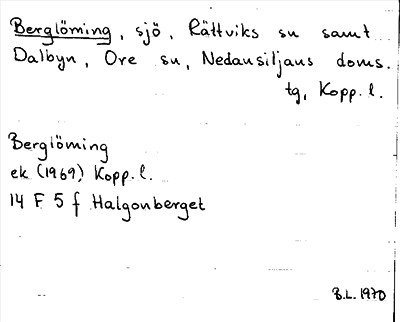 Berglöming, sjö, Rättviks sn samt
Dalbyn, Ore sn, Nedansiljans doms.
tg, Kopp. l.
Berglöming
ek (1969) Kopp. l.
14 F 5 f Halgonberget
B.L. 1970